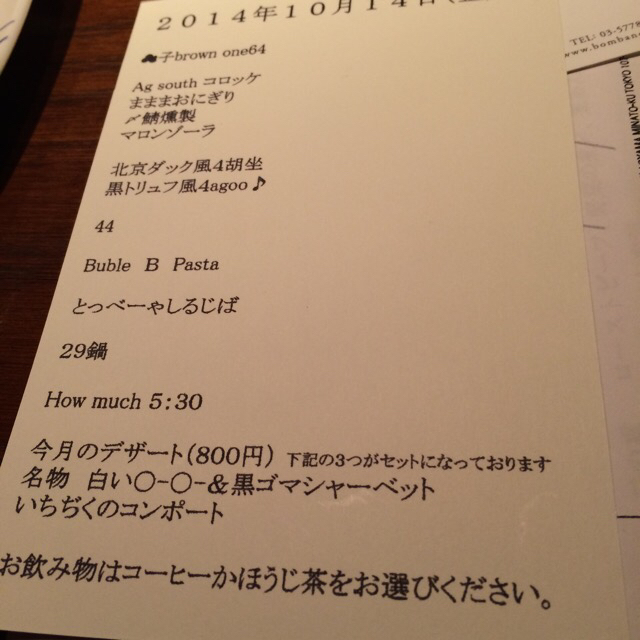 2014年10月14日
子brown one64
Ag south コロッケ
まままおにぎり
〆鯖燻製
マロンゾーラ
北京ダック風4胡坐
黒トリュフ風4agoo♪
44
Buble B Pasta
とっべーゃしるじば
29鍋
How much 5:30
今月のデザート(800円) 下記の3つがセットになっております
名物 白い〇-〇-&黒ゴマシャーベット
いちぢくのコンポート
お飲み物はコーヒーかほうじ茶をお選びください。
TEL: 03-5778
www.bomban